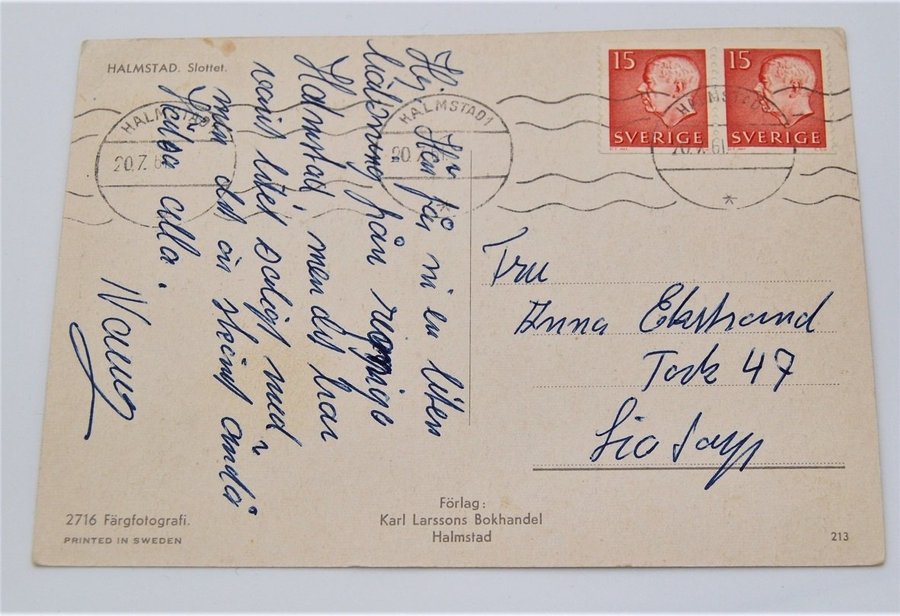 HALMSTAD. Slottet.
15 15
SVERIGE SVERIGE
HALMSTAD 1
20.7.61
HALMSTAD 1
20.7.61
HALMSTAD 1
20.7.61
Hej. Här får ni en liten
hälsning från regnige
Halmstad men det har
varit litet soligt med
men det är skönt ändå
Hälsa alla.
Fru
Anna Ekstrand
47
Förlag:
Karl Larssons Bokhandel
Halmstad
2716 Färgfotografi.
PRINTED IN SWEDEN
213